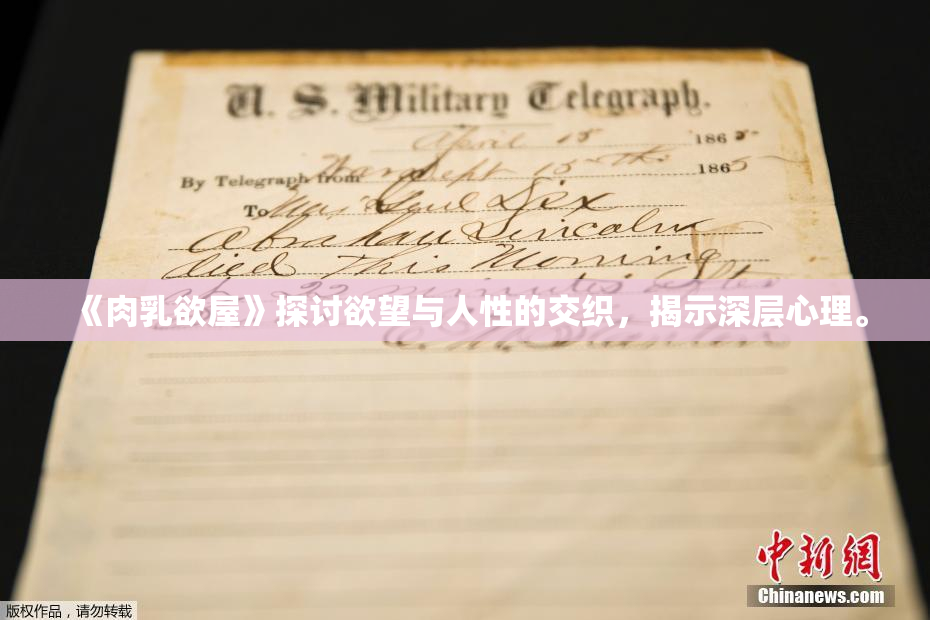 U. S. Military Telegraph.
April 15 1865
By Telegraph from War Dept 15th 1865
To Maj Genl Dix
Abraham Lincoln
died This Morning
at 22 minutes after
《肉乳欲屋》探讨欲望与人性的交织，揭示深层心理。
E. M. Stanton
中新网
Chinanews.com
版权作品，请勿转载